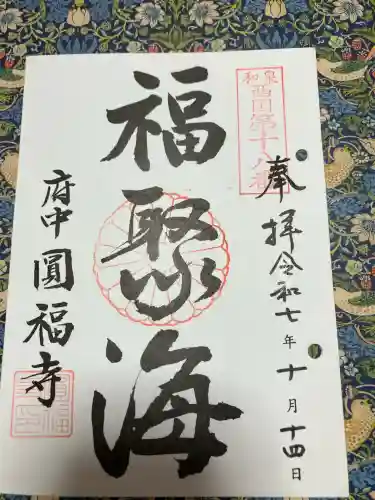 和泉
西国第十八番
奉拝
令和七年十月十四日
福聚海
府中圓福寺